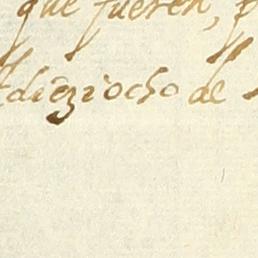 que fueren, p
diez i ocho de